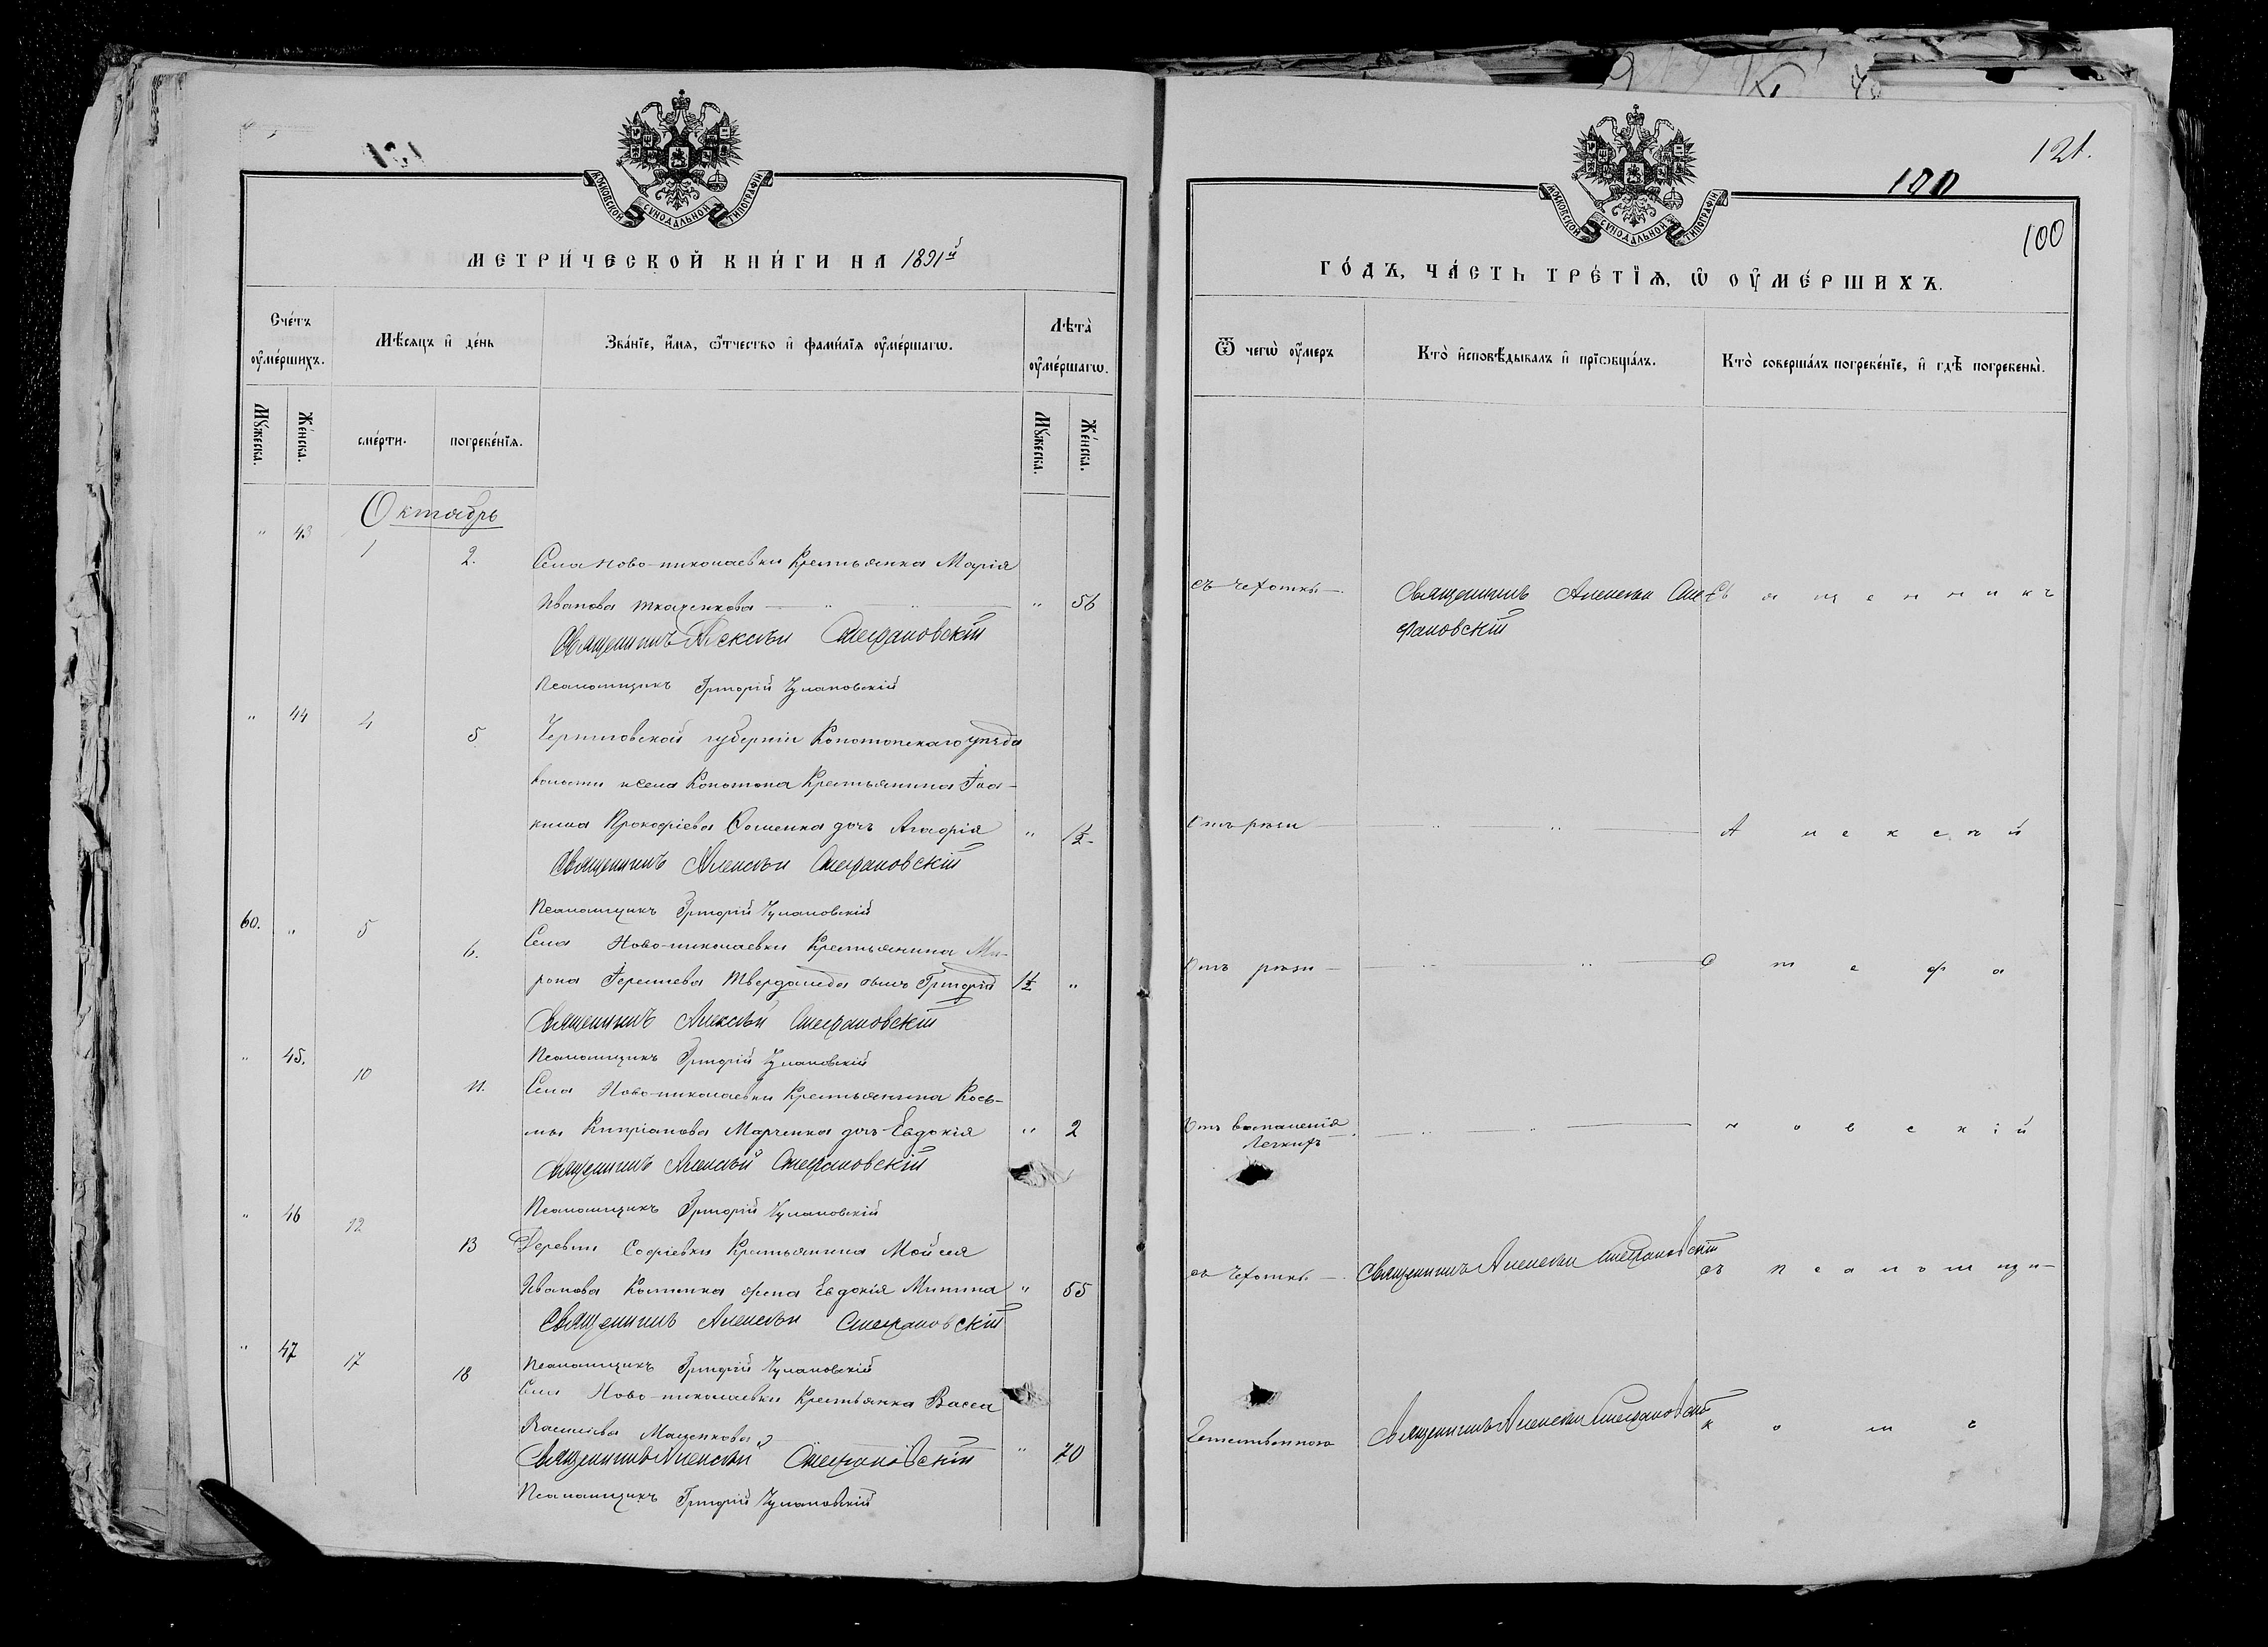 121.
100
100
МОСКОВСКОЙ СѴНОДАЛЬНОЙ ТИПОГРАФІИ
МЕТРИ́ЧЕСКОЙ КНИ́ГИ НА 1891й
Сче́тъ оу҆ме́ршихъ.
Мѣ́сяцъ и҆ де́нь
Зва́нїе, и҆́мя, ѻ҆́тчество и҆ фами́лїя оу҆ме́ршагѡ.
Лѣ́та оу҆ме́ршагѡ.
Мꙋ́жеска.
Же́нска.
сме́рти.
погребе́нїя.
Мꙋ́жеска.
Же́нска.
Октябрь
" 43 1 2. Села Ново-николаевки Крестьянка Марія
Иванова Ткаченкова " 56
Священникъ Алексѣй Стефановскій
Псаломщикъ Григорій Чулановскій
" 44 4 5 Черниговской губерніи Конотопскаго уѣзда
волости и села Конотопа Крестьянина Іоа-
кима Прокофіева дочь Агафія " 1½
Священникъ Алексѣй Стефановскій
Псаломщикъ Григорій Чулановскій
60. " 5 6. Села Ново-николаевки Крестьянина Ми-
рона сынъ Григорій 1½ "
Священникъ Алексѣй Стефановскій
Псаломщикъ Григорій Чулановскій
" 45. 10 11. Села Ново-николаевки Крестьянина Кось-
мы Кипріанова Марченка дочь Евдокія " 2
Священникъ Алексѣй Стефановскій
Псаломщикъ Григорій Чулановскій
" 46 12 13 Деревни Софіевки Крестьянина Мойсея
Иванова жена Евдокія Минина " 55
Священникъ Алексѣй Стефановскій
Псаломщикъ Григорій Чулановскій
" 47 17 18 Села Ново-николаевки Крестьянка Васса
Василіева Маценкова " 70
Священникъ Алексѣй Стефановскій
Псаломщикъ Григорій Чулановскій
МОСКОВСКОЙ СѴНОДАЛЬНОЙ ТИПОГРАФІИ
ГО́ДЪ, ЧА́СТЬ ТРЕ́ТЇѦ, Ѡ҆ ОУ҆МЕ́РШИХЪ.
Ѿ чегѡ̀ оу҆́меръ
Кто̀ и҆сповѣ́дывалъ и҆ прїѡбща́лъ.
Кто̀ соверша́лъ погребе́нїе, и҆ гдѣ̀ погребены̀.
съ чехотки Священникъ Алексѣй Сте- Священникъ
фановскій
Отъ рези " " Алексѣй
Отъ рези " Стефа
Отъ воспаленія " " новскій
легкихъ
съ Чехотки Священникъ Алексѣй Стефановскій съ Псаломщи-
Естественного Священникъ Алексѣй Стефановскій комъ